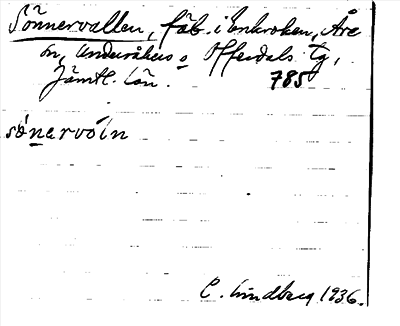 Sönnervallen, fäb. i Enkroken, Åre
sn, Undersåkers o Offerdals tg,
Jämtl. län. 785
sönervóin
C. Lindberg 1936.